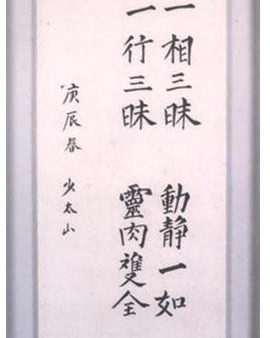 一相三昧 動静一如
一行三昧 靈肉雙全
庚辰春 少太山